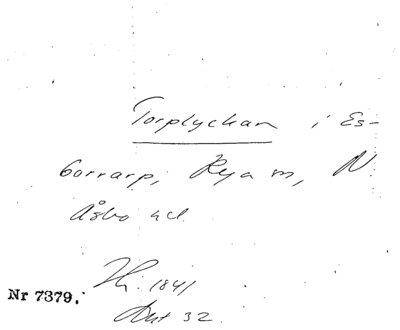 Torplyckan i Es-
borrarp, Rya sn, N.
Åsbo hd.
Nr 7379.
1841
Akt 32.